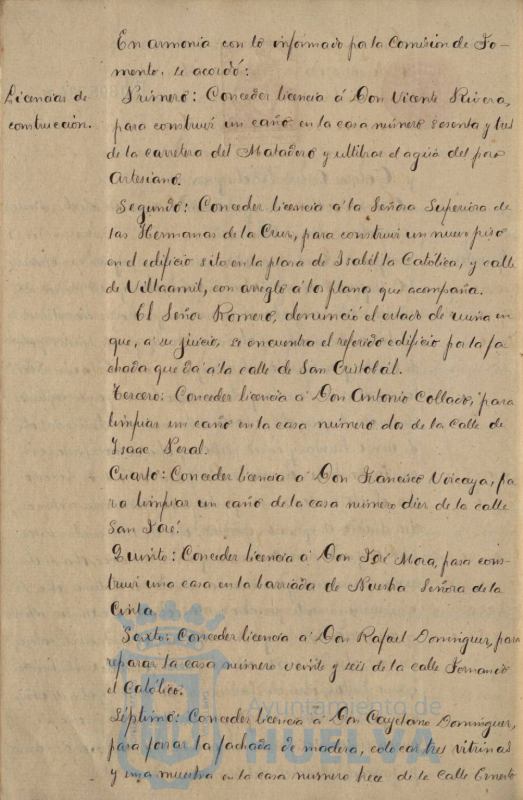 En armonia con lo informado por la Comision de Fo-
mento, se acordó:
Licencias de
construccion.
Primero: Conceder licencia á Don Vicente Rivera,
para construir un caño en la casa número sesenta y tres
de la carretera del Matadero y utilizar el agua del pozo
Artesiano.
Segundo: Conceder licencia á la Señora Superiora de
las Hermanas de la Cruz, para construir un nuevo piso
en el edificio sito en la plaza de Isabel la Católica, y calle
de Villaamil, con arreglo á los planos que acompaña.
El Señor Romero, denunció el estado de ruina en
que, á su juicio, se encuentra el referido edificio por la fa
chada que dá á la calle de San Cristobál.
Tercero: Conceder licencia á Don Antonio Collado, para
limpiar un caño en la casa número dos de la calle de
Isaac Peral.
Cuarto: Conceder licencia á Don Francisco Vizcaya, pa
ra limpiar un caño de la casa número diez de la calle
San José.
Quinto: Conceder licencia á Don José Mora, para cons-
truir una casa en la barriada de Nuestra Señora de la
Cinta.
Sexto: Conceder licencia á Don Rafael Dominguez, para
reparar la casa número veinte y seis de la calle Fernando
el Católico.
Séptimo: Conceder licencia á Don Cayetano Dominguez,
para forrar la fachada de madera, colocar tres vitrinas
y una muestra en la casa número trece de la calle Ernesto
Ayuntamiento de
HUELVA